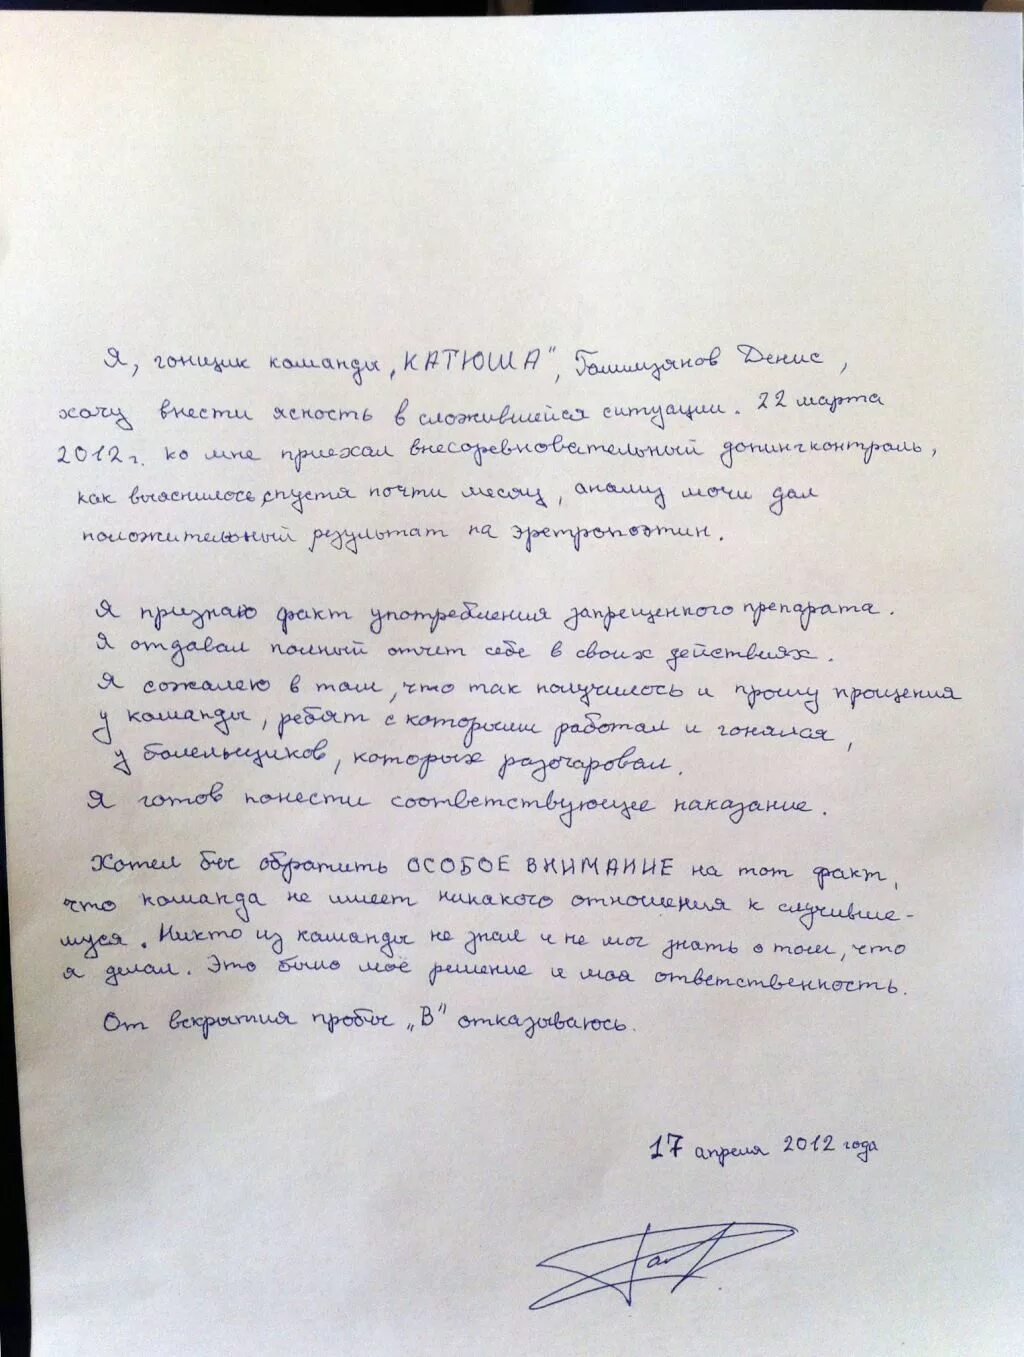 Я, гонщик команды „КАТЮША", Галимзянов Денис,
хочу внести ясность в сложившейся ситуации. 22 марта
2012г. ко мне приехал внесоревновательный допингконтроль,
как выяснилось, спустя почти месяц, анализ мочи дал
положительный результат на эретропоэтин.
Я признаю факт употребления запрещенного препарата.
Я отдавал полный отчет себе в своих действиях.
Я сожалею в том, что так получилось и прошу прощения
у команды, ребят с которыми работал и гонялся,
у болельщиков, которых разочаровал.
Я готов понести соответствующее наказание.
Хотел бы обратить ОСОБОЕ ВНИМАНИЕ на тот факт,
что команда не имеет никакого отношения к случивше-
муся. Никто из команды не знал и не мог знать о том, что
я делал. Это было моё решение и моя ответственность.
От вскрытия пробы „В" отказываюсь.
17 апреля 2012 года